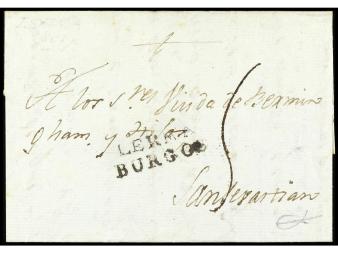 A los S.res Viuda de Bermin
gham. y Hijos
LERMA
BURGOS
San Sevastian
5